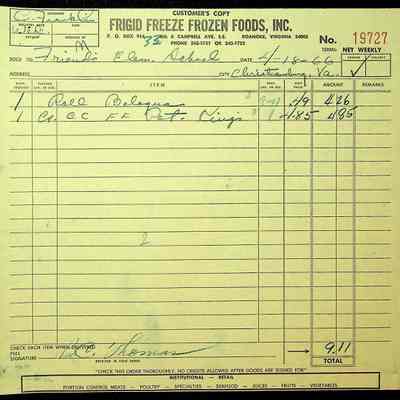 CUSTOMER'S COPY
FRIGID FREEZE FROZEN FOODS, INC.
ROANOKE, VIRGINIA
PHONE 342-1721 OR 342-1722
No. 19727
TERMS: NET WEEKLY
SOLD TO Friends Elem. School DATE 4/18-66
ADDRESS Christiansburg, Va.
ITEM AMOUNT REMARKS
1 Roll Bologna 49 4.26
1 Cs. CC FF Pot. Rings 1 4.85 4.85
CHECK EACH ITEM WHEN DELIVERED
FULL SIGNATURE Thomas 9.11
RECEIVED IN GOOD ORDER TOTAL
"CHECK THIS ORDER THOROUGHLY. NO CREDITS ALLOWED AFTER GOODS ARE SIGNED FOR"
INSTITUTIONAL - RETAIL
PORTION CONTROL MEATS - POULTRY - SPECIALTIES - SEAFOOD - JUICES - FRUITS - VEGETABLES